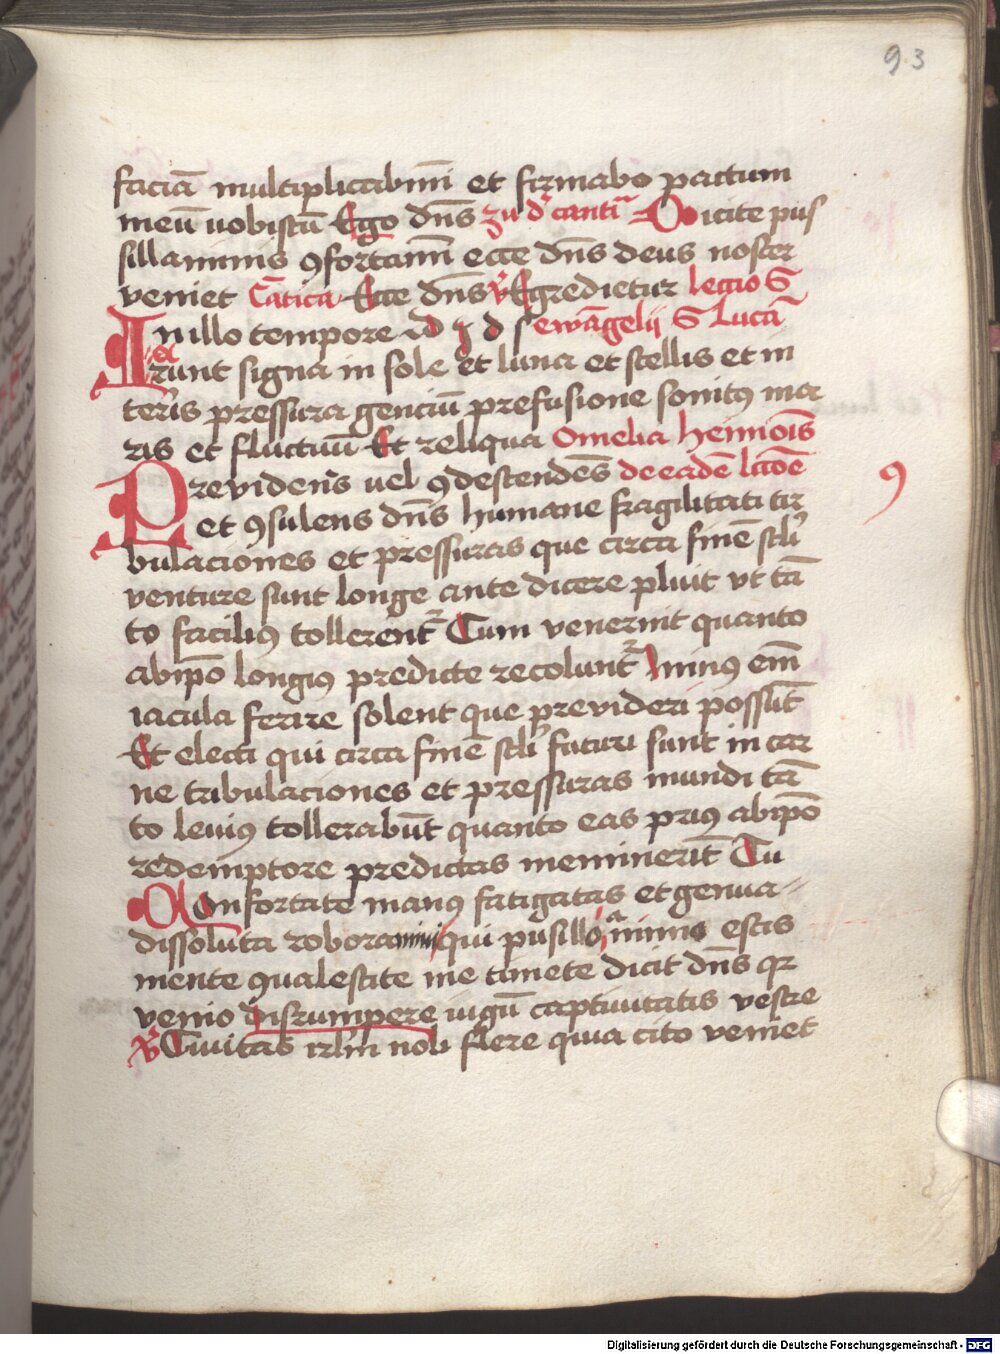 93
faciā multiplicabimī et firmabo pactum
meū uobiscū Ego dn̄s zu dʾ cantiᵃ Dicite pus
sillanimis ꝯfortamī ecce dn̄s deus noster
veniet Cātica Ecce dn̄s v̓ Egredietur lectio S
In illo tempore d s ewāgelij S Lucā
et
runt signa in sole et luna et stellis et in
terris pressura genciū prefusione sonitꝰ ma
ris et fluctuū Et reliqua Omelia
Previdens uel ꝯdescendēs de eadē lc̄ōe
et ꝯsulens dn̄s humane fragilitati tri
bulaciones et pressuras que circa finē scl̓i
venture sunt longe ante dicere pluit vt tā
to faciliꝰ tollerent̾ Cum venerint quanto
abip̄o longiꝰ predicte recolunt̾ Minꝰ em̄
iacula ferire solent que previderi possūt
Et electi qui circa finē scl̓i futuri sunt in car
ne tribulaciones et pressuras mundi tā
to leuiꝰ tollerabūt quanto eas priꝰ abip̄o
redemptore predictas meminerīt Tu
Confortate manꝰ fatigatas et genua
dissoluta robora qui pusillo animo estis
mente ꝯualescite ne timete dicit dn̄s qr
venio disrumpere iugū captiuitatis vestre
v̓ Ciuitas irl̄m noli flere quia cito veniet
Digitalisierung gefördert durch die Deutsche Forschungsgemeinschaft - DFG